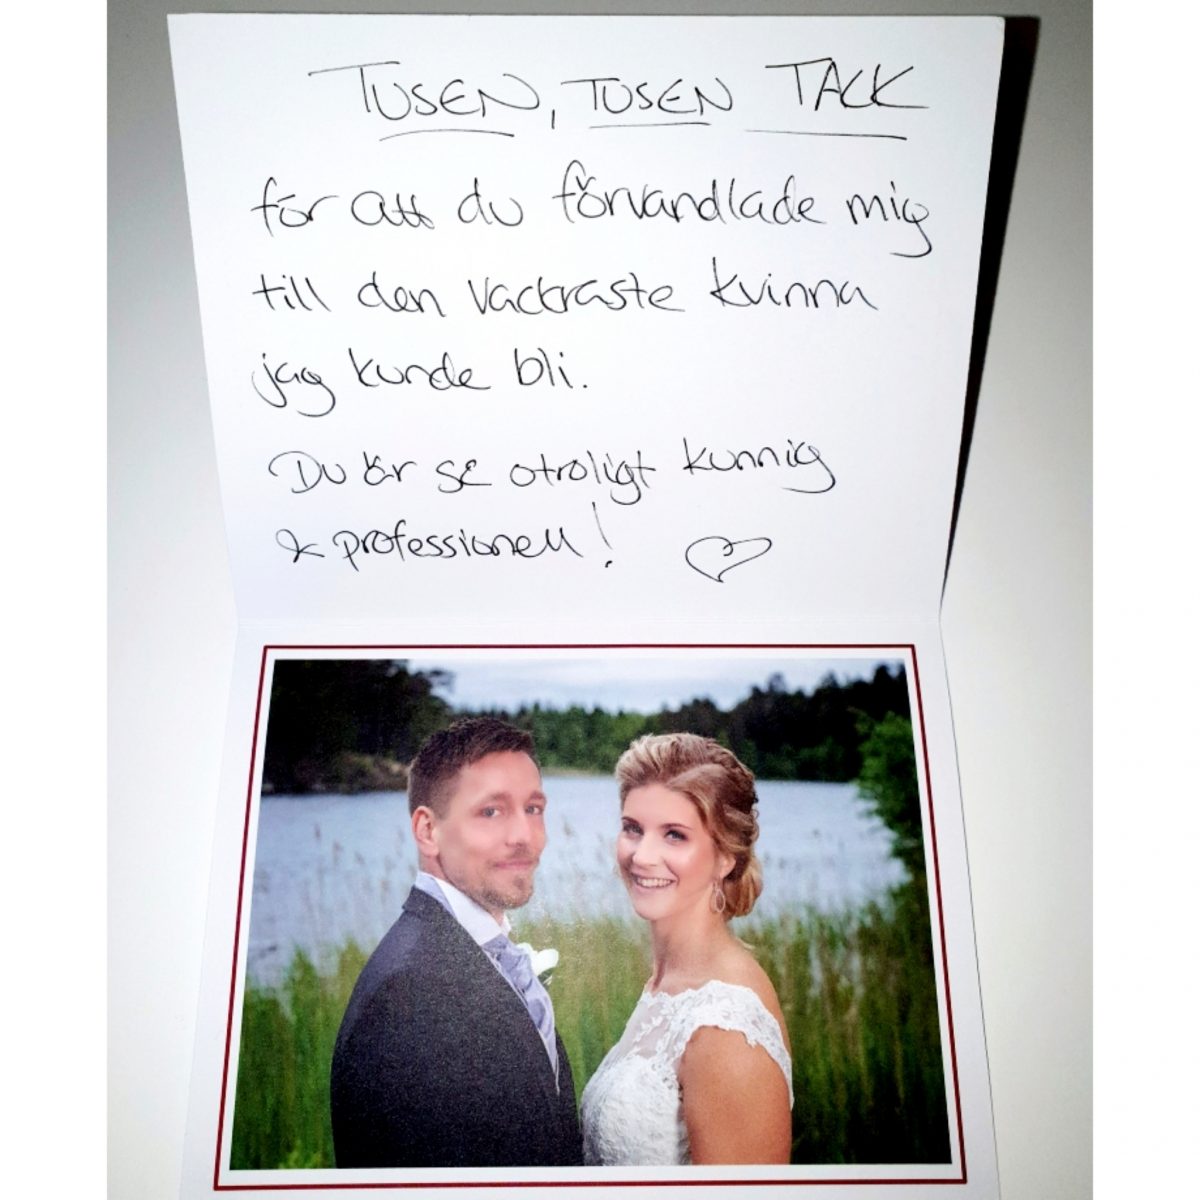 TUSEN, TUSEN TACK
för att du förvandlade mig
till den vackraste kvinna
jag kunde bli.
Du är så otroligt kunnig
& professionell!